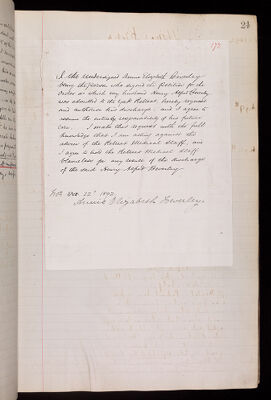 24
173
I the undersigned Annie Elizabeth Beverley
being the person who signed the petition for the
order on which my husband Henry Alfred Beverley
was admitted to the York Retreat hereby request
and authorise his discharge and I agree to
assume the entire responsibility of his future
care. I make this request with the full
knowledge that I am acting against the
advice of the Retreat Medical Staff, and
I agree to hold the Retreat Medical Staff
blameless for any result of the discharge
of the said Henry Alfred Beverley
22nd 1892
Annie Elizabeth Beverley